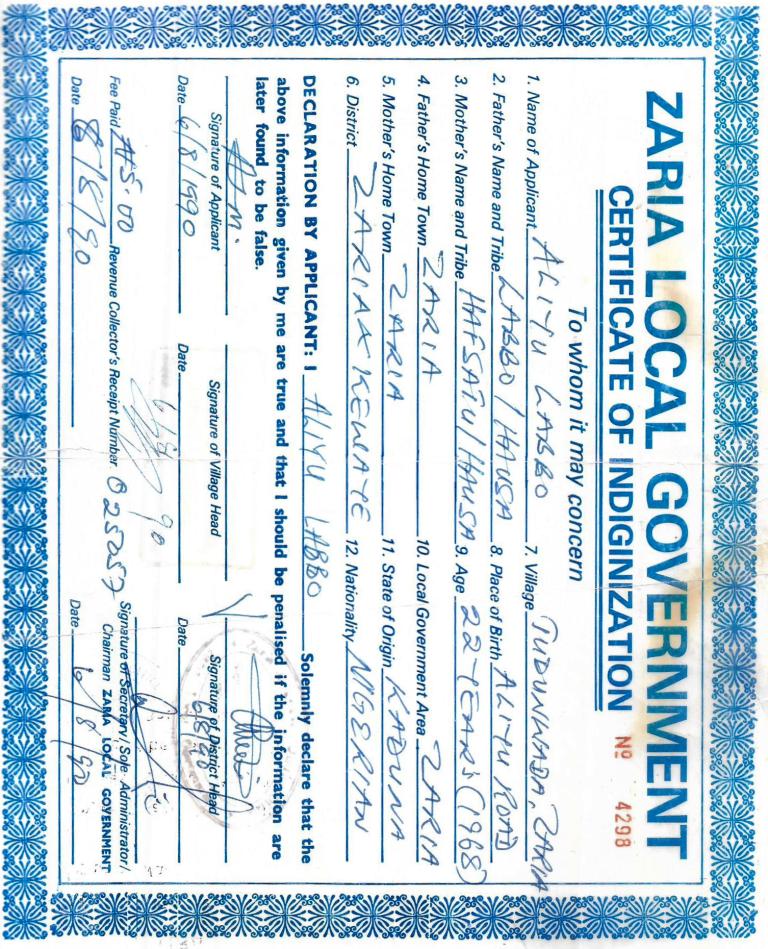 ZARIA LOCAL GOVERNMENT
CERTIFICATE OF INDIGINIZATION
Nº 4298
To whom it may concern
1. Name of Applicant ALIYU LABBO 7. Village TUDUNWADA, ZARIA
2. Father's Name and Tribe LABBO/HAUSA 8. Place of Birth ALIYU ROAD
3. Mother's Name and Tribe HAFSATU/HAUSA 9. Age 22-YEARS (1968)
4. Father's Home Town ZARIA 10. Local Government Area ZARIA
5. Mother's Home Town ZARIA 11. State of Origin KADUNA
6. District ZARIA & KEWAYE 12. Nationality NIGERIAN
DECLARATION BY APPLICANT: I ALIYU LABBO Solemnly declare that the
above information given by me are true and that I should be penalised if the information are
later found to be false.
Signature of Applicant Signature of Village Head Signature of District Head
Date 6/8/1990 Date 6/8/90 Date 6/8/90
Fee Paid ₦5.00 Revenue Collector's Receipt Number 025057 Signature of Secretary/Sole Administrator/
Chairman ZARIA LOCAL GOVERNMENT
Date 6/8/90 Date 6/8/90